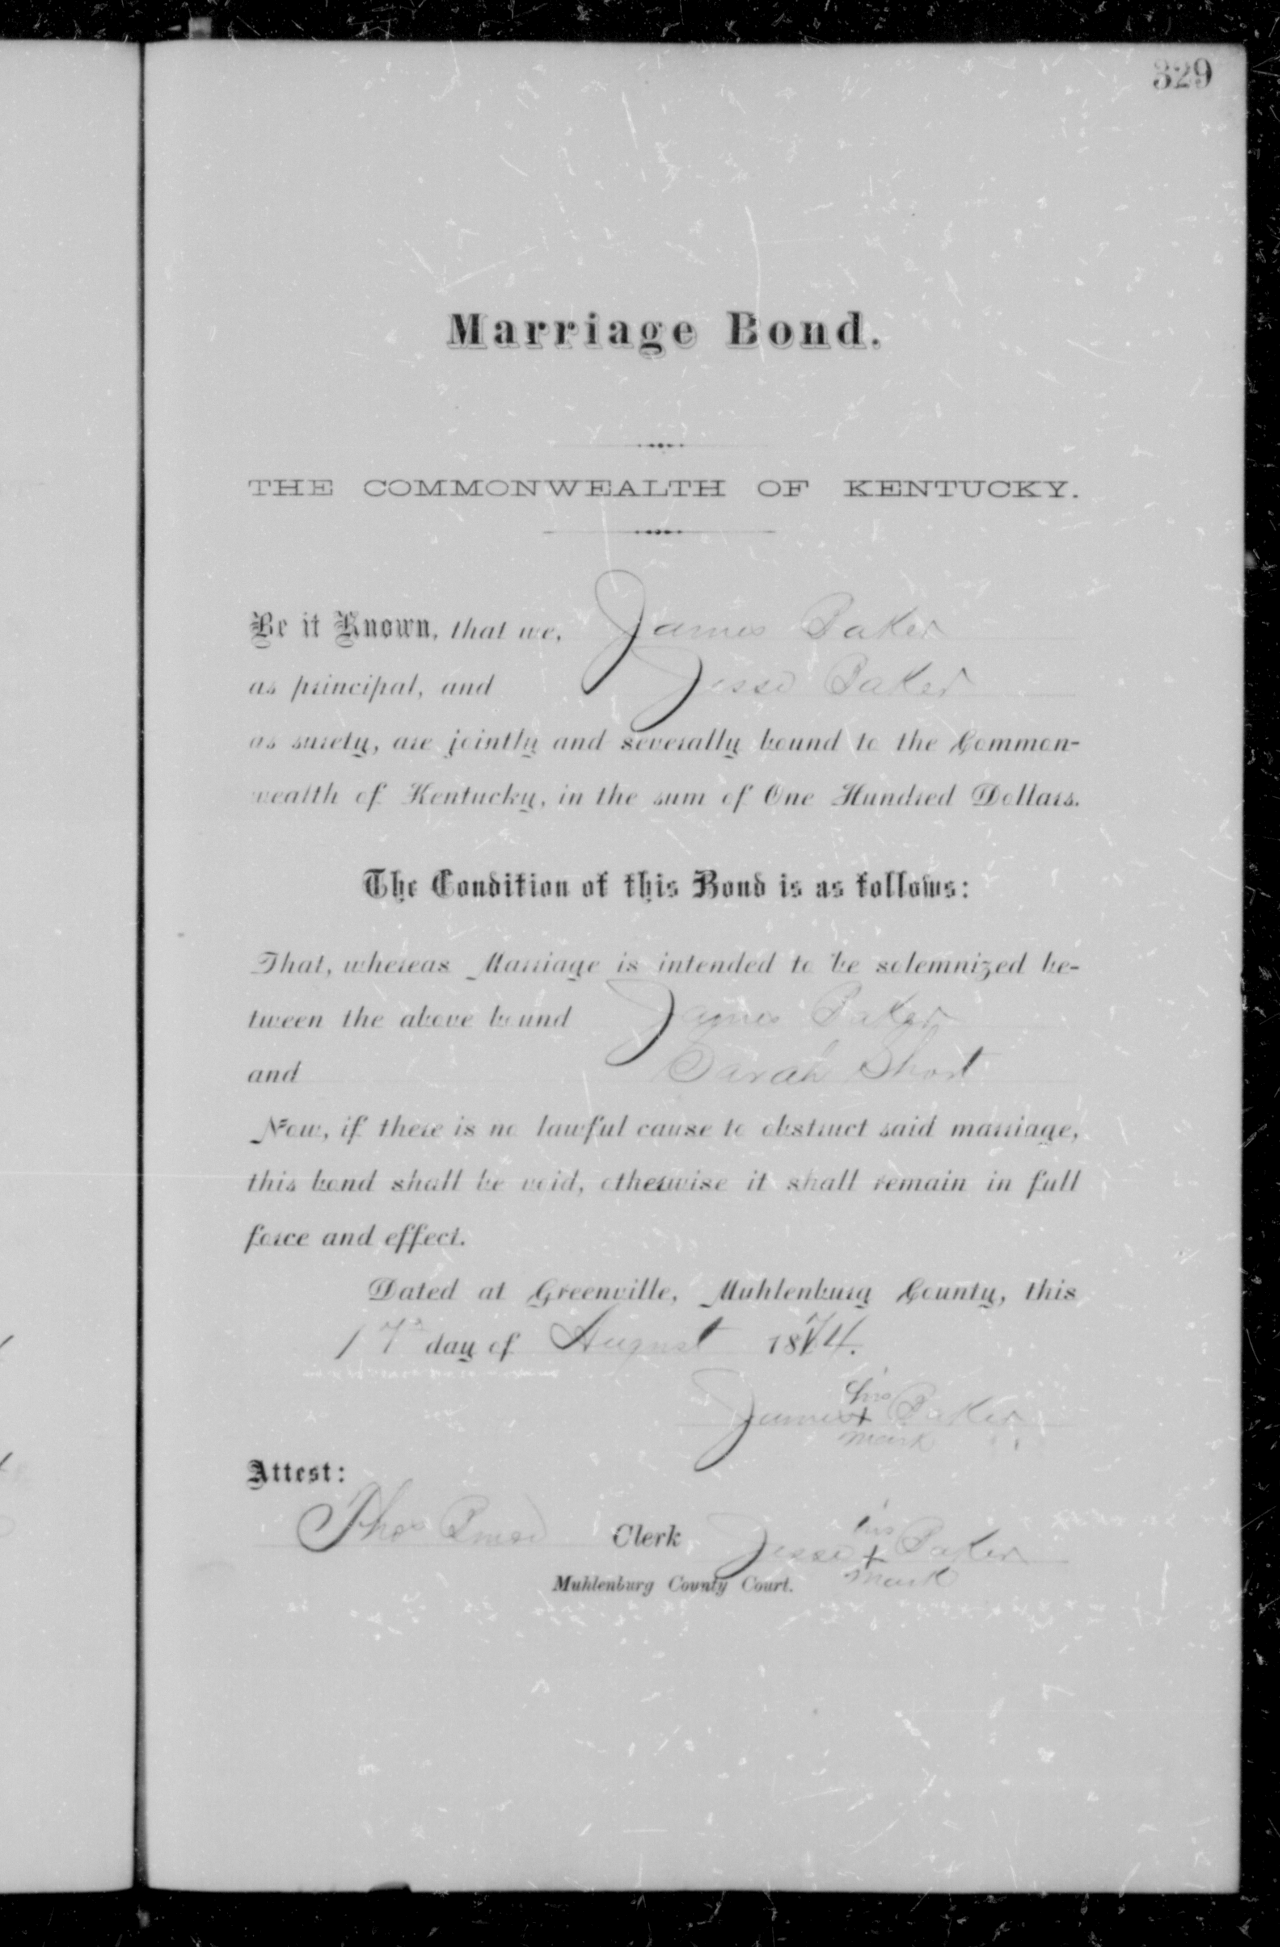 329
Marriage Bond.
THE COMMONWEALTH OF KENTUCKY.
Be it Known, that we, James Baker
as principal, and Jesse Baker
as surety, are jointly and severally bound to the Common-
wealth of Kentucky, in the sum of One Hundred Dollars.
The Condition of this Bond is as follows:
That, whereas Marriage is intended to be solemnized be-
tween the above bound James Baker
and Sarah Short
Now, if there is no lawful cause to obstruct said marriage,
this bond shall be void, otherwise it shall remain in full
force and effect.
Dated at Greenville, Muhlenburg County, this
17th day of August 1874.
his
James + Baker
mark
Attest:
Thos Clerk
his
Jesse + Baker
mark
Muhlenburg County Court.